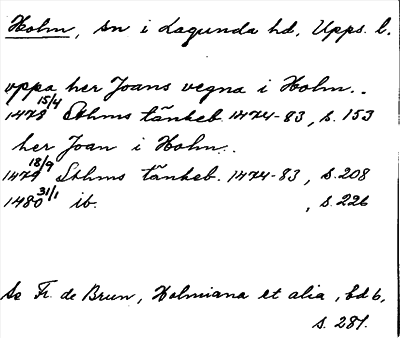 Holm, sn i Lagunda hd, Upps. l.
uppa her Joans vegna i Holm..
1478 15/4 Sthms tänkeb 1474-83, s. 153
her Joan i Holm..
1479 18/9 Sthms tänkeb. 1474-83, s. 208
1480 31/1 ib. , s. 226
Se Fr. de Brun, Holmiana et alia, bd 6,
s. 281.